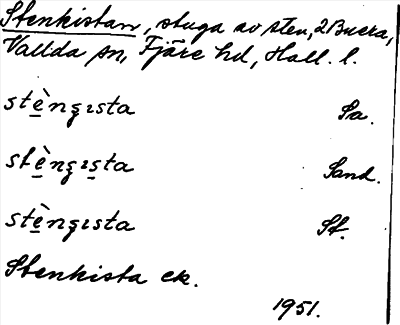 Stenkistan, stuga av sten, 2 Buera,
Vallda sn, Fjäre hd, Hall. l.
stè̱nʂısta Sa.
stè̱nʂıʂta Sand.
stè̱nʂısta St.
Stenkista ek.
1951.